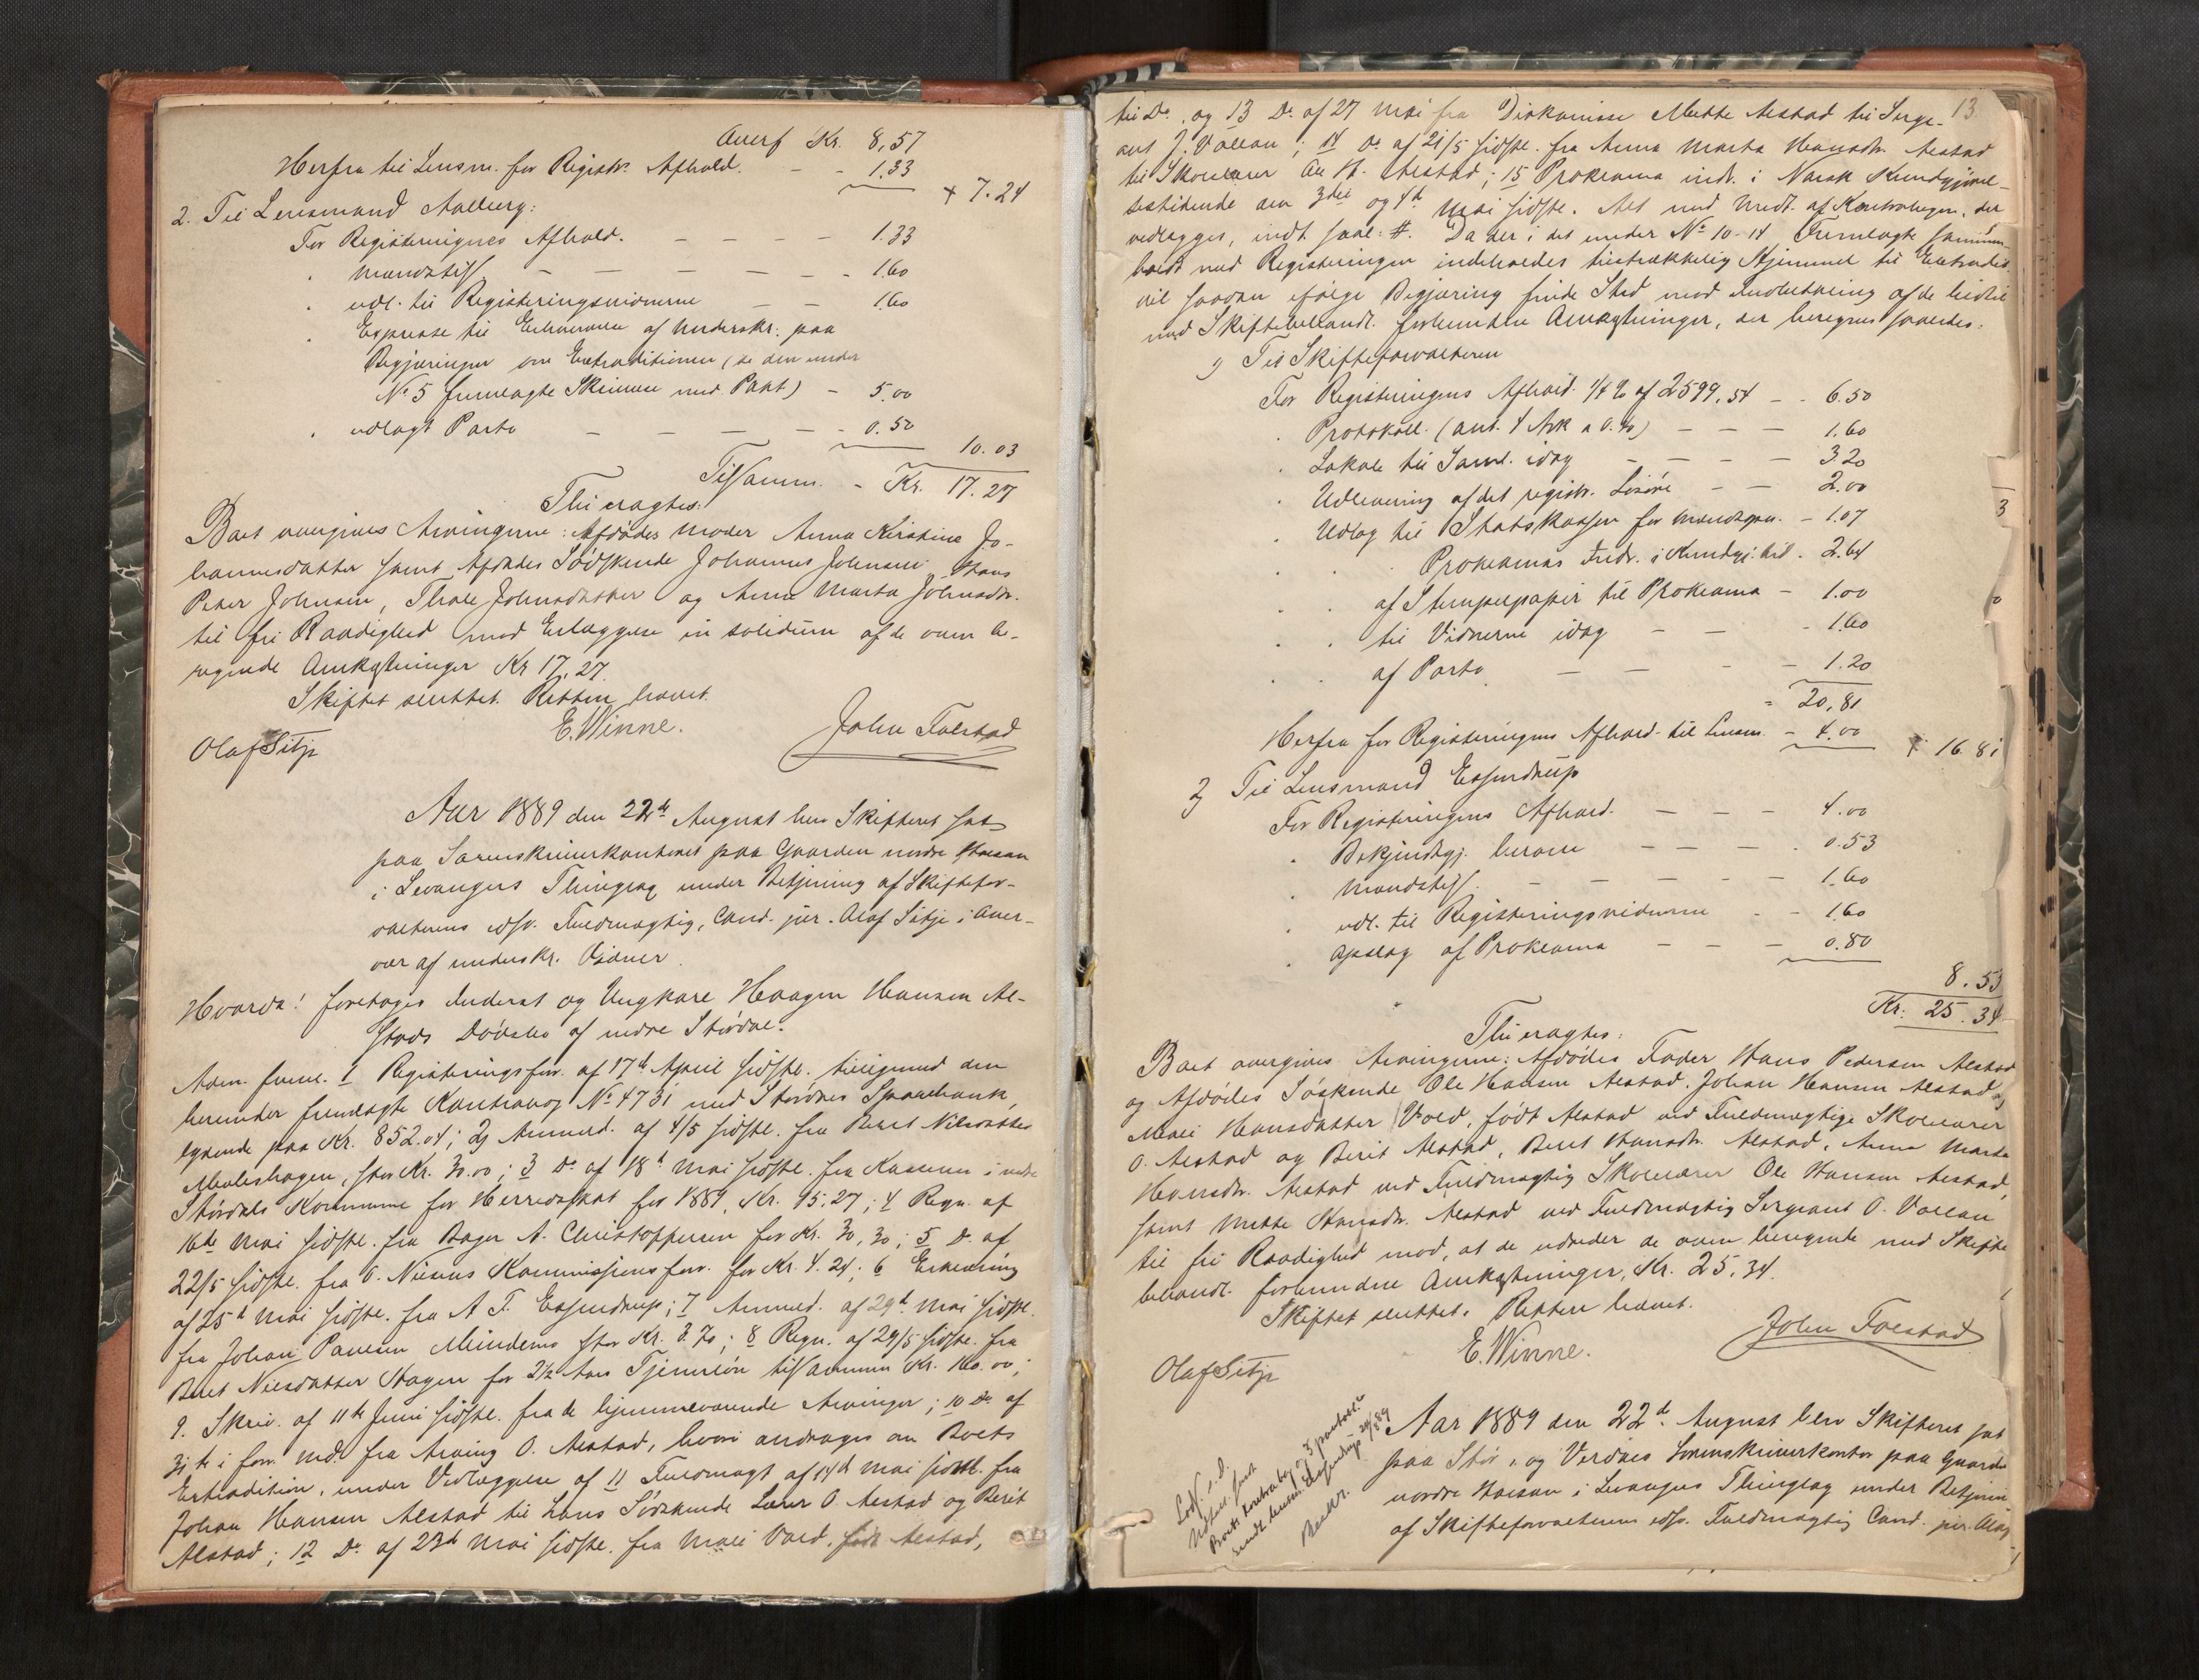 Overf Kr. 8,57
Herfra til Lensm. for Registr. Afhold. - - 1.33
+ 7.24
2. Til Lensmand Aalberg:
For Registeringnes Afhold. - - - - 1.33
" Mandstiff. - - - - - - 1.60
" udl. til Registeringsvidnerne - - 1.60
" Expresse til Erhvervelse af Underskr. paa
Begjæringen om Extraditionen (se den under
No 5 fremlagte Skrivelse med Paat) - 5.00
" udlagt Porto - - - - - 0.50
10.03
Tilsamm. - Kr. 17.27
Thi eragtes:
Boet overgives Arvingerne: Afdødes Moder Anna Kirstine Jo-
hannesdatter samt Afdødes Sødskende Johannes Johnsen, Hans
Peter Johnsen, Thale Johnsdatter og Anne Marta Johnsdtr.
til fri Raadighed mod Erlæggelse in solidum af de ovenbe-
regnede Omkostninger Kr 17,27.
Skiftet sluttet. Retten hævet.
Olaf Sitje E. Winne. John Folstad
Aar 1889 den 22de August blev Skifteret sat
paa Sorenskriverkontoret paa Gaarden nordre Halsan
i Levangers Thinglag under Betjening af Skiftefor-
valterens edsv. Fuldmægtig, Cand. jur. Olaf Sitje i Over-
vær af underskr. Vidner.
Hvorda! foretoges Inderst og Ungkarl Haagen Hansen Al-
stads Dødsbo af nedre Størdal.
Adm. freml. 1 Registeringsforr. af 17de April sidstl. tilligemed den
herunder fremlagte Kontrabog No 4731 med Stördals Sparebank,
lydende paa Kr. 852.04; 2, Anmeld. af 4/5 sidstl. fra Beret Nilsdatter
Mulishagen, stor Kr. 30.00; 3 Do af 18de Mai sidstl. fra Kassereren i nedre
Stördals Kommune for Herredsskat for 1889, Kr. 15.27; 4 Regn. af
16de Mai sidstl. fra Bager A. Christoppersen for Kr. 30,30; 5 Do af
22/5 sidstl. fra O. Nilsens Kommissionsforr. for Kr. 4.24; 6 Erklæring
af 25de Mai sidstl. fra A. T. Essendrup; 7 Anmeld. af 29de Mai sidstl.
fra Johan Paulsen Mindemo stor Kr. 3.70; 8 Regn. af 29/5 sidstl. fra
Beret Nilsdatter Hagen for 2½ Aars Tjenerløn tilsammen Kr. 160.00;
9. Skriv. af 11te Juni sidstl. fra de hjemmeværende Arvinger; 10 Do af
31te i forr. Md. fra Arving O. Alstad, hvori andrages om Boets
Extradition, under Vedlæggelse af 11 Fuldmagt af 14de Mai sidstl. fra
Johan Hansen Alstad til hans Sødskende Lærer O. Alstad og Berit
Alstad; 12 Do af 23de Mai sidstl. fra Mali Vold, født Alstad,
13
til Do, og 13 Do af 27 Mai fra Diakonisse Mette Alstad til Serge-
ant J. Vollan; 14 Do af 21/5 sidstl. fra Anna Marta Hansdtr. Alstad
til Skolelærer Ole H. Alstad; 15 Proklama indr. i Norsk Kundgjørel-
sestidende den 3die og 4de Mai sidstl. Alt med Undt. af Kontrabogen, der
vedlægges, indt. saal: #. Da der i det under No 10-14 Fremlagte sammen-
holdt med Registeringen indeholdes tilstrækkelig Hjemmel til Extradit.
vil saadan ifølge Begjæring finde Sted mod Indbetaling af de hidtil
med Skiftebehandl. forbundne Omkostninger, der beregnes saaledes:
1) Til Skifteforvalteren
For Registeringens Afhold. 1/4 % af 2599.54 - - 6.50
" Protokoll. (ant. 4 Ark a 0.40) - - - 1.60
" Lokale til Saml. idag - - - - 3.20
" Udlevering af det registr. Løsøre - - 2.00
" Udlag til Statskassen for Mandtspen. - 1.07
" " Proklamas Indr. i Kundgj. tid. - 2.64
" " af Stempelpapir til Proklama - 1.00
" " til Vidnerne idag - - - 1.60
" " af Porto - - - - 1.20
= 20,81
Herfra for Registeringens Afhold. til Lensm. - 4.00
+ 16.81
2) Til Lensmand Essendrup
For Registeringens Afhold. - - - 4.00
" Bekjendtgj. herom - - - - 0.53
" Mandstiff. - - - - - 1.60
" udl. til Registeringsvidnerne - - 1.60
" Opslag af Proklama - - - 0.80
8.53
Kr. 25.34
Thi eragtes:
Boet overgives Arvingerne: Afdødes Fader Hans Pedersen Alstad
og Afdødes Søskende Ole Hansen Alstad, Johan Hansen Alstad og
Mali Hansdatter Vold, født Alstad ved Fuldmægtige Skolelærer
O. Alstad og Berit Alstad, Beret Hansdtr. Alstad, Anna Marta
Hansdtr. Alstad ved Fuldmægtig Skolelærer Ole Hansen Alstad,
samt Mette Hansdtr. Alstad ved Fuldmægtig Sergeant O. Vollan
til fri Raadighed mod, at de udreder de oven beregnede med Skifte
behandl. forbundne Omkostninger, Kr. 25,34.
Skiftet sluttet. Retten hævet.
Olaf Sitje E. Winne. John Folstad
Boets Kontrabog og 3
sendt Lensm. Essendrup 24/8 89
Aar 1889 den 22de August blev Skifteret sat
paa Stør- og Verdals Sorenskriverkontor paa Gaarden
nordre Halsan i Levangers Thinglag under Betjenin
af Skifteforvalterens edsv. Fuldmægtig Cand. jur. Olaf